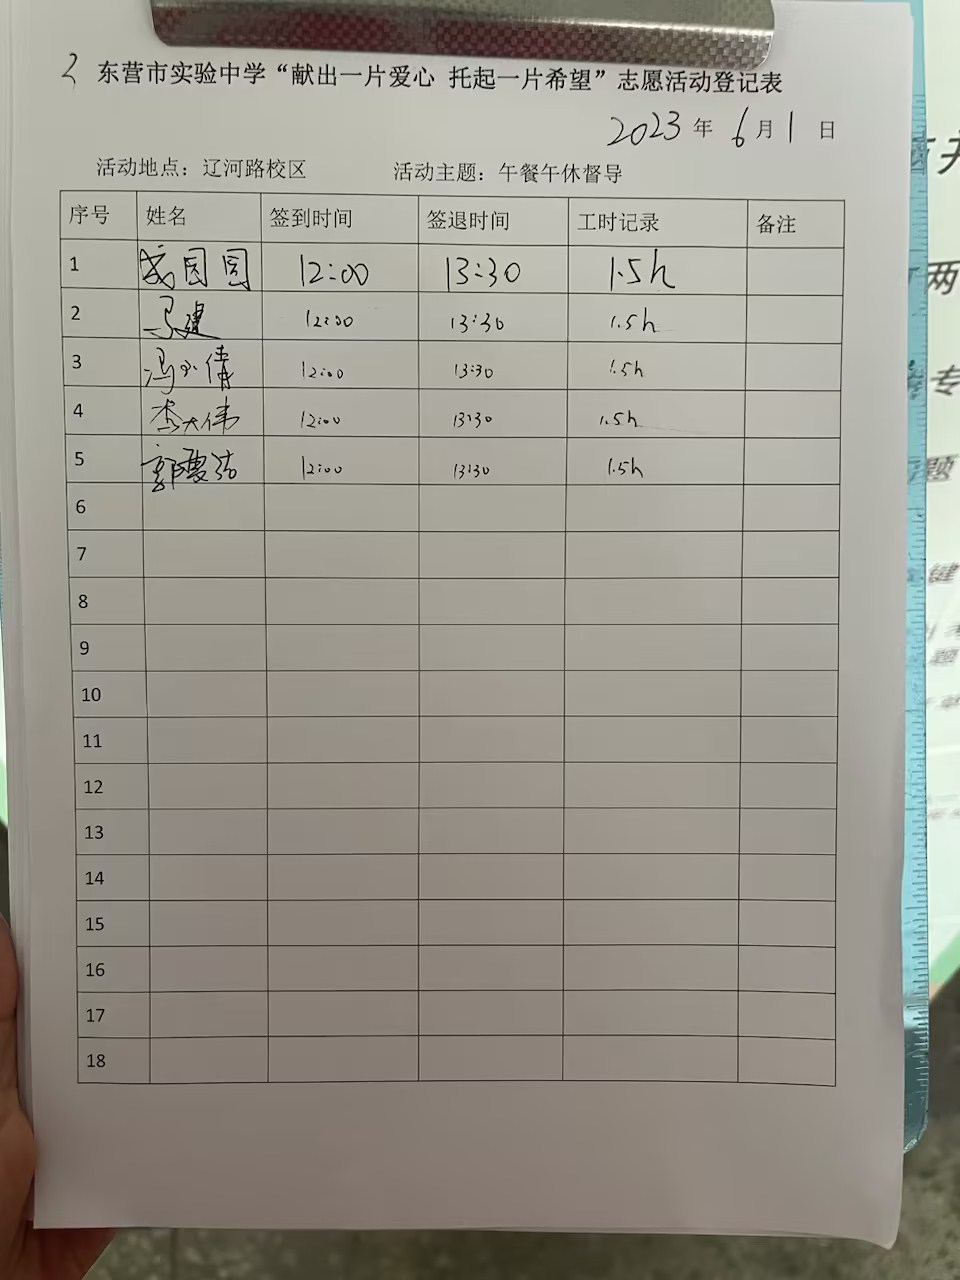 2 东营市实验中学“献出一片爱心 托起一片希望”志愿活动登记表
2023年 6月1日
活动地点：辽河路校区 活动主题：午餐午休督导
序号 姓名 签到时间 签退时间 工时记录 备注
1 园园 12:00 13:30 1.5h
2 马建 12:00 13:30 1.5h
3 冯小倩 12:00 13:30 1.5h
4 李大伟 12:00 13:30 1.5h
5 郭 12:00 13:30 1.5h
6
7
8
9
10
11
12
13
14
15
16
17
18
两
专
题
键
题